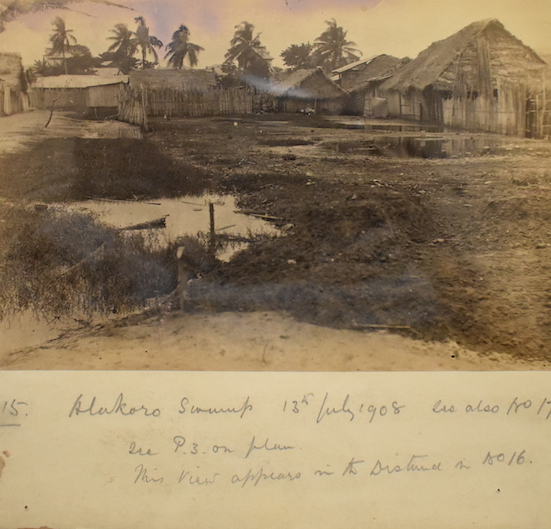 15. Alakoro Swamp 13th July 1908 see also No 17
see P.3. on plan.
This View appears in the Distance in No 16.